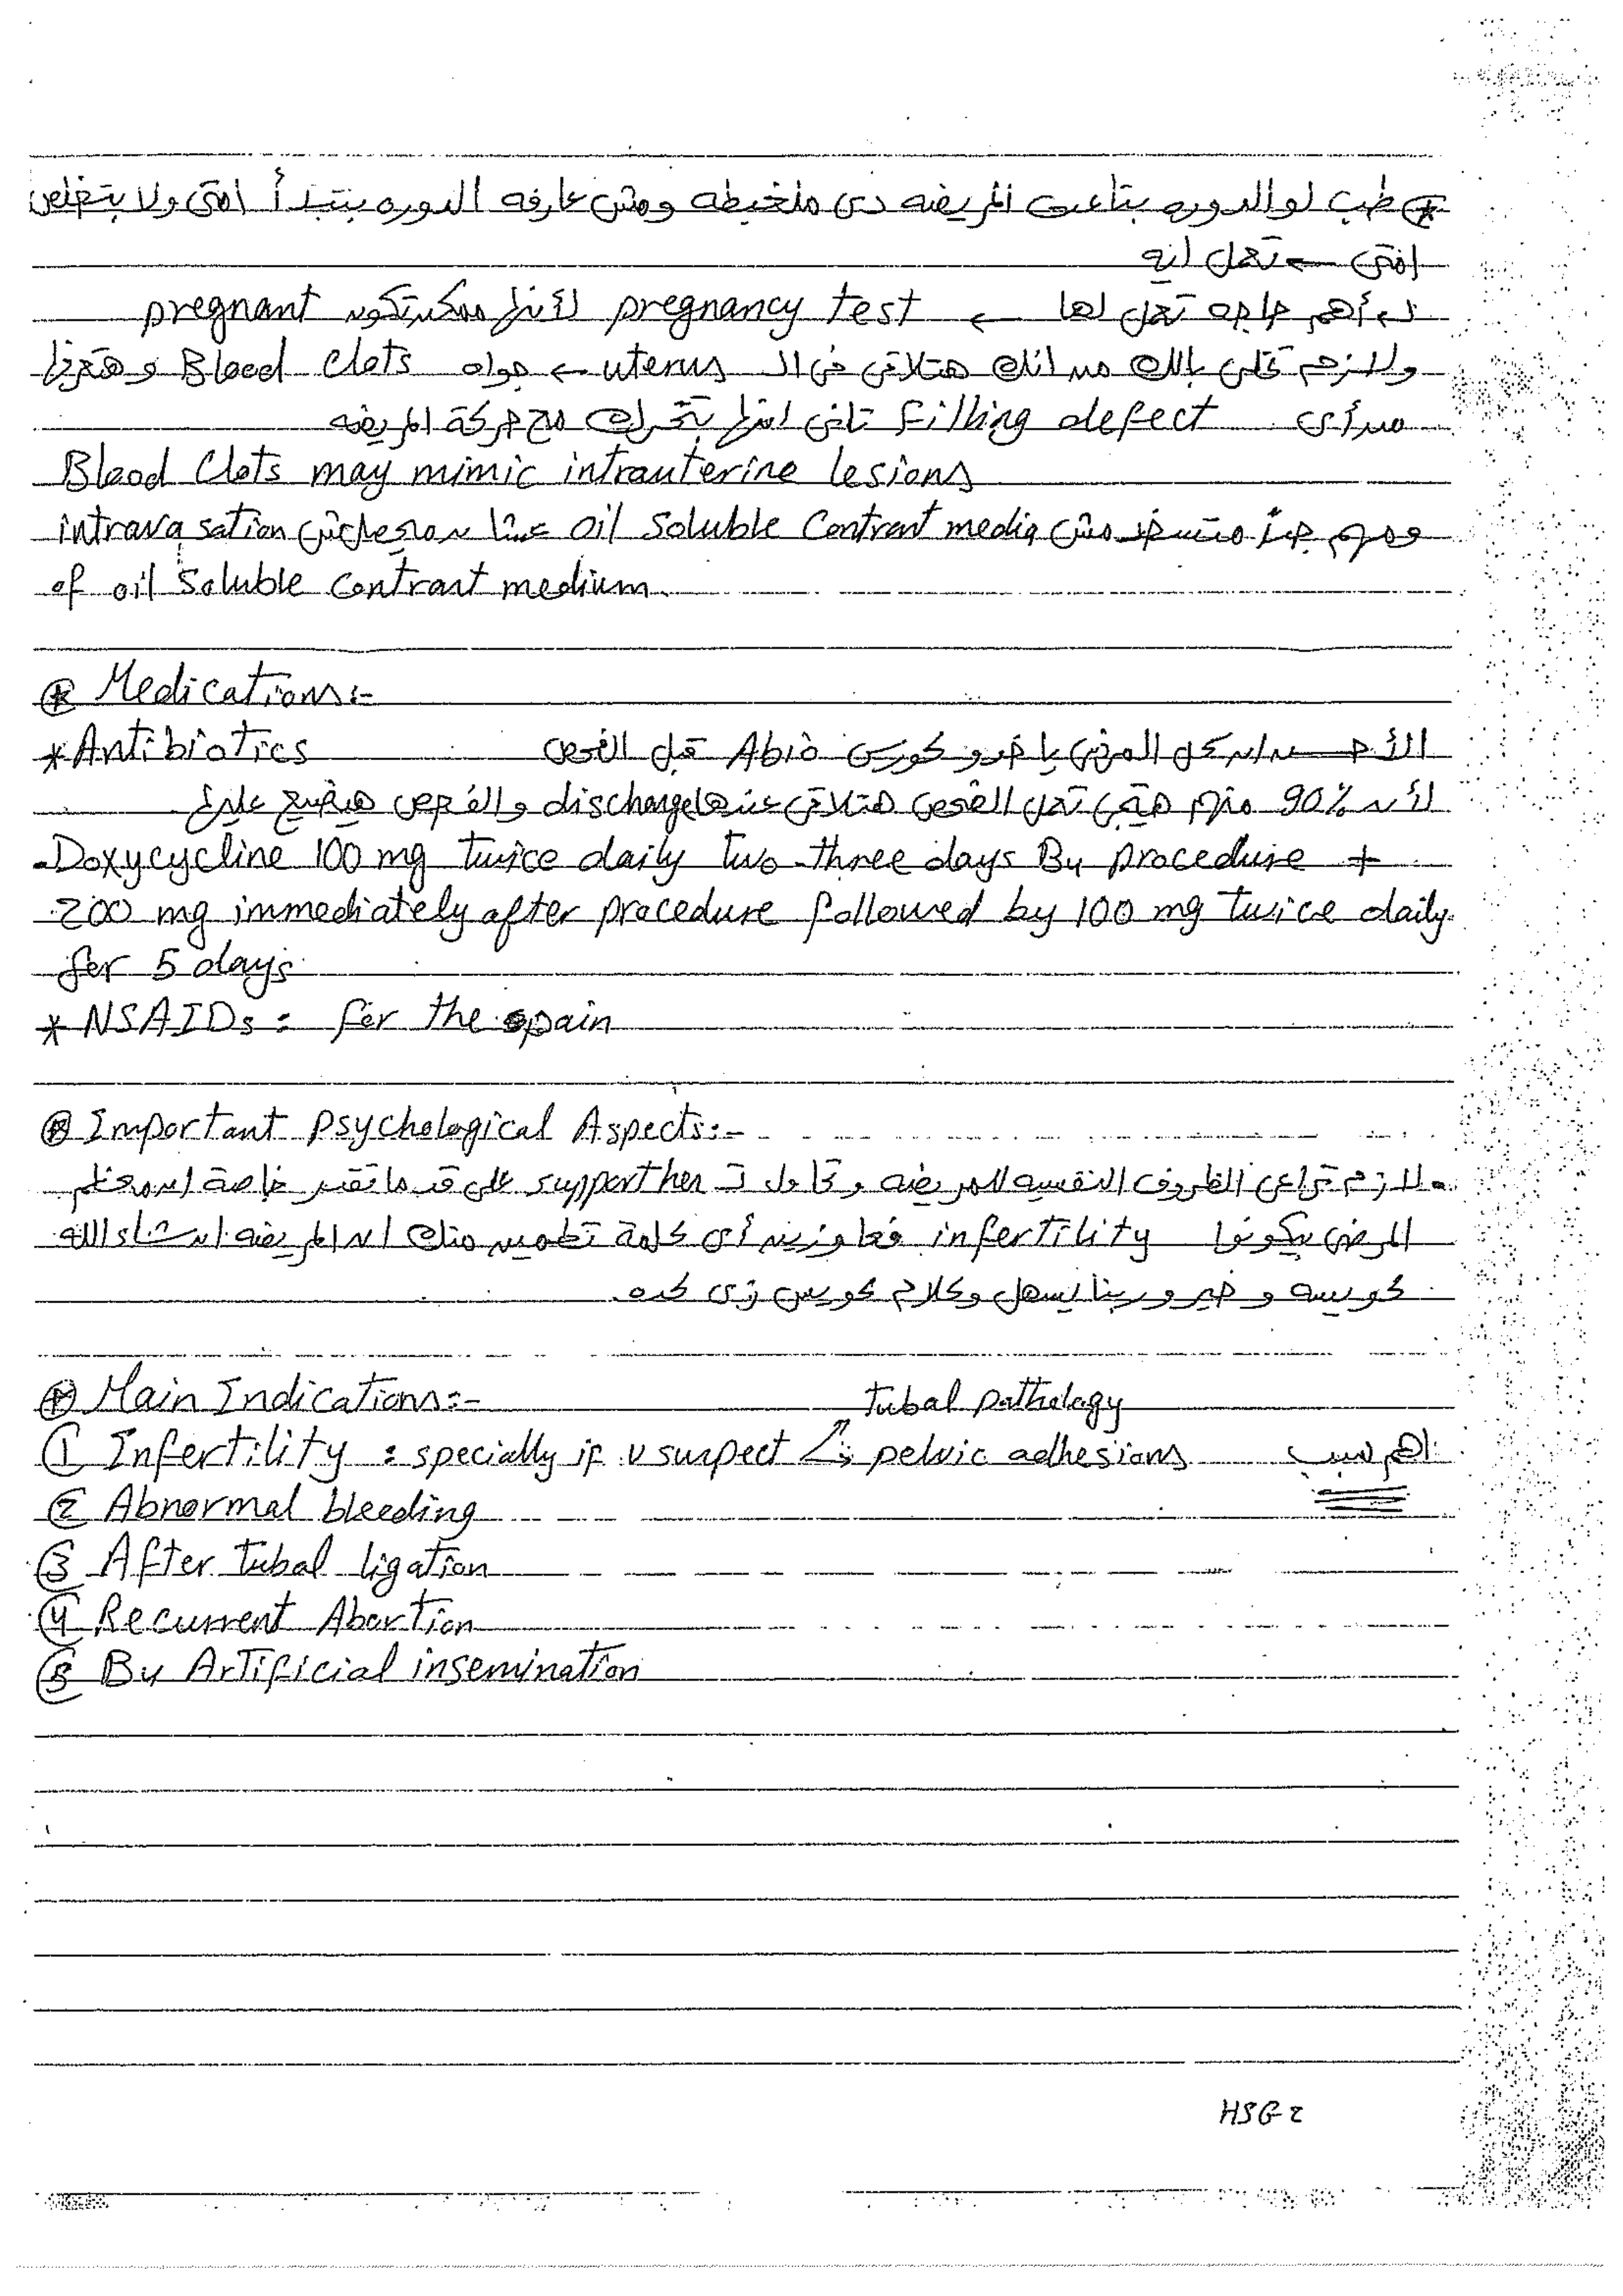 * طب لو الدوره بتاعت المريضه دى ملخبطه ومش عارفه الدوره بتبدأ امتى ولا بتخلص
امتى ← تعمل ايه
أهم حاجه تعمل لها ← pregnancy test لأنها ممكن تكون pregnant
ولازم تخلى بالك من انك هتلاقى فى الـ uterus ← جواه Blood clots وهتعرفها
من أى filling defect تانى انها بتتحرك مع حركة المريضه
Blood Clots may mimic intrauterine lesions
ومهم جداً متستخدمش oil soluble Contrast media عشان ميحصلش intravasation
of oil soluble contrast medium.
* Medications:-
* Antibiotics الأحسن ان كل المرضى ياخدو كورس Abio قبل الفحص
لأن 90% منهم هتيجى تعمل الفحص هتلاقى عندها discharge والفحص هيضيع عليها
- Doxycycline 100 mg twice daily two-three days B4 procedure +
200 mg immediately after procedure followed by 100 mg twice daily
for 5 days
* NSAIDs : for the pain
* Important Psychological Aspects:-
- لازم تراعى الظروف النفسيه للمريضه وتحاول تـ support her على قد ما تقدر خاصة ان معظم
المرضى بيكونوا infertility فعاوزين أى كلمة تطمين منك ان المريضه ان شاء الله
كويسه وخير وربنا يسهل وكلام كويس زى كده.
* Main Indications:-
Tubal pathology
① Infertility : specially if u suspect pelvic adhesions اهم سبب
② Abnormal bleeding
③ After tubal ligation
④ Recurrent Abortion
⑤ B4 Artificial insemination
HSG 2